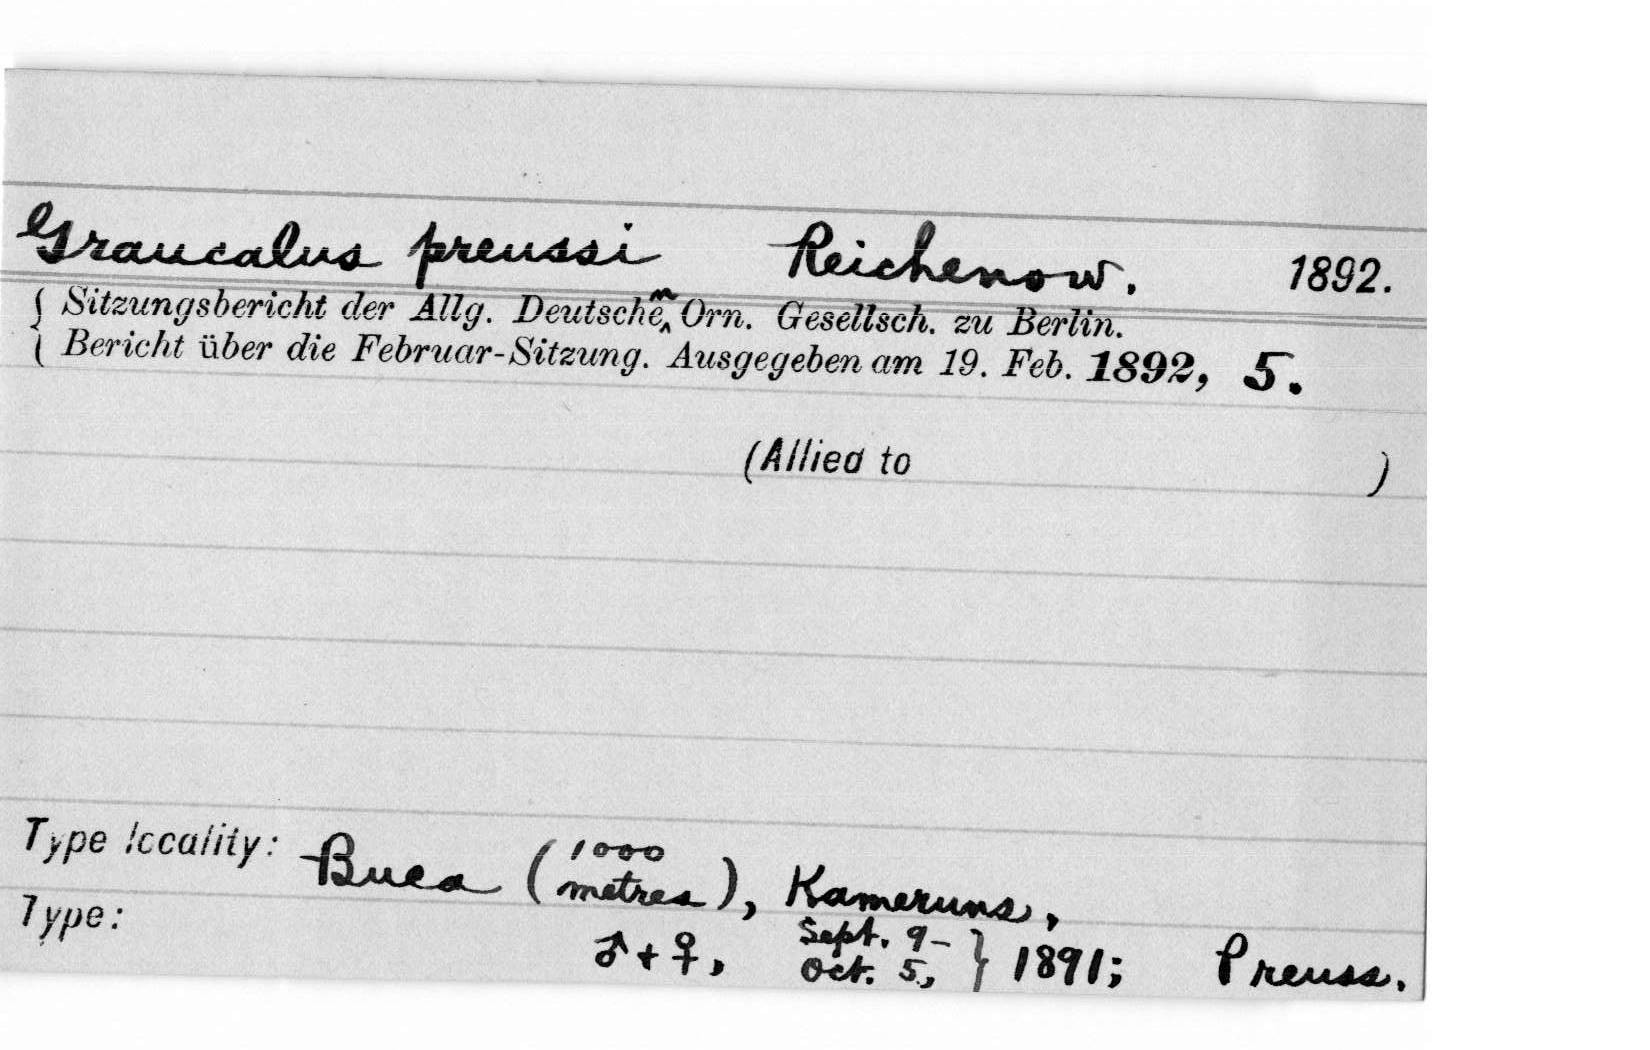 Graucalus preussi Reichenow. 1892.
{ Sitzungsbericht der Allg. Deutschen Orn. Gesellsch. zu Berlin.
{ Bericht über die Februar-Sitzung. Ausgegeben am 19. Feb. 1892, 5.
(Allied to )
Type locality: Buea (1000 metres), Kameruns,
Type: ♂ + ♀, Sept. 9- Oct. 5, } 1891; Preuss.